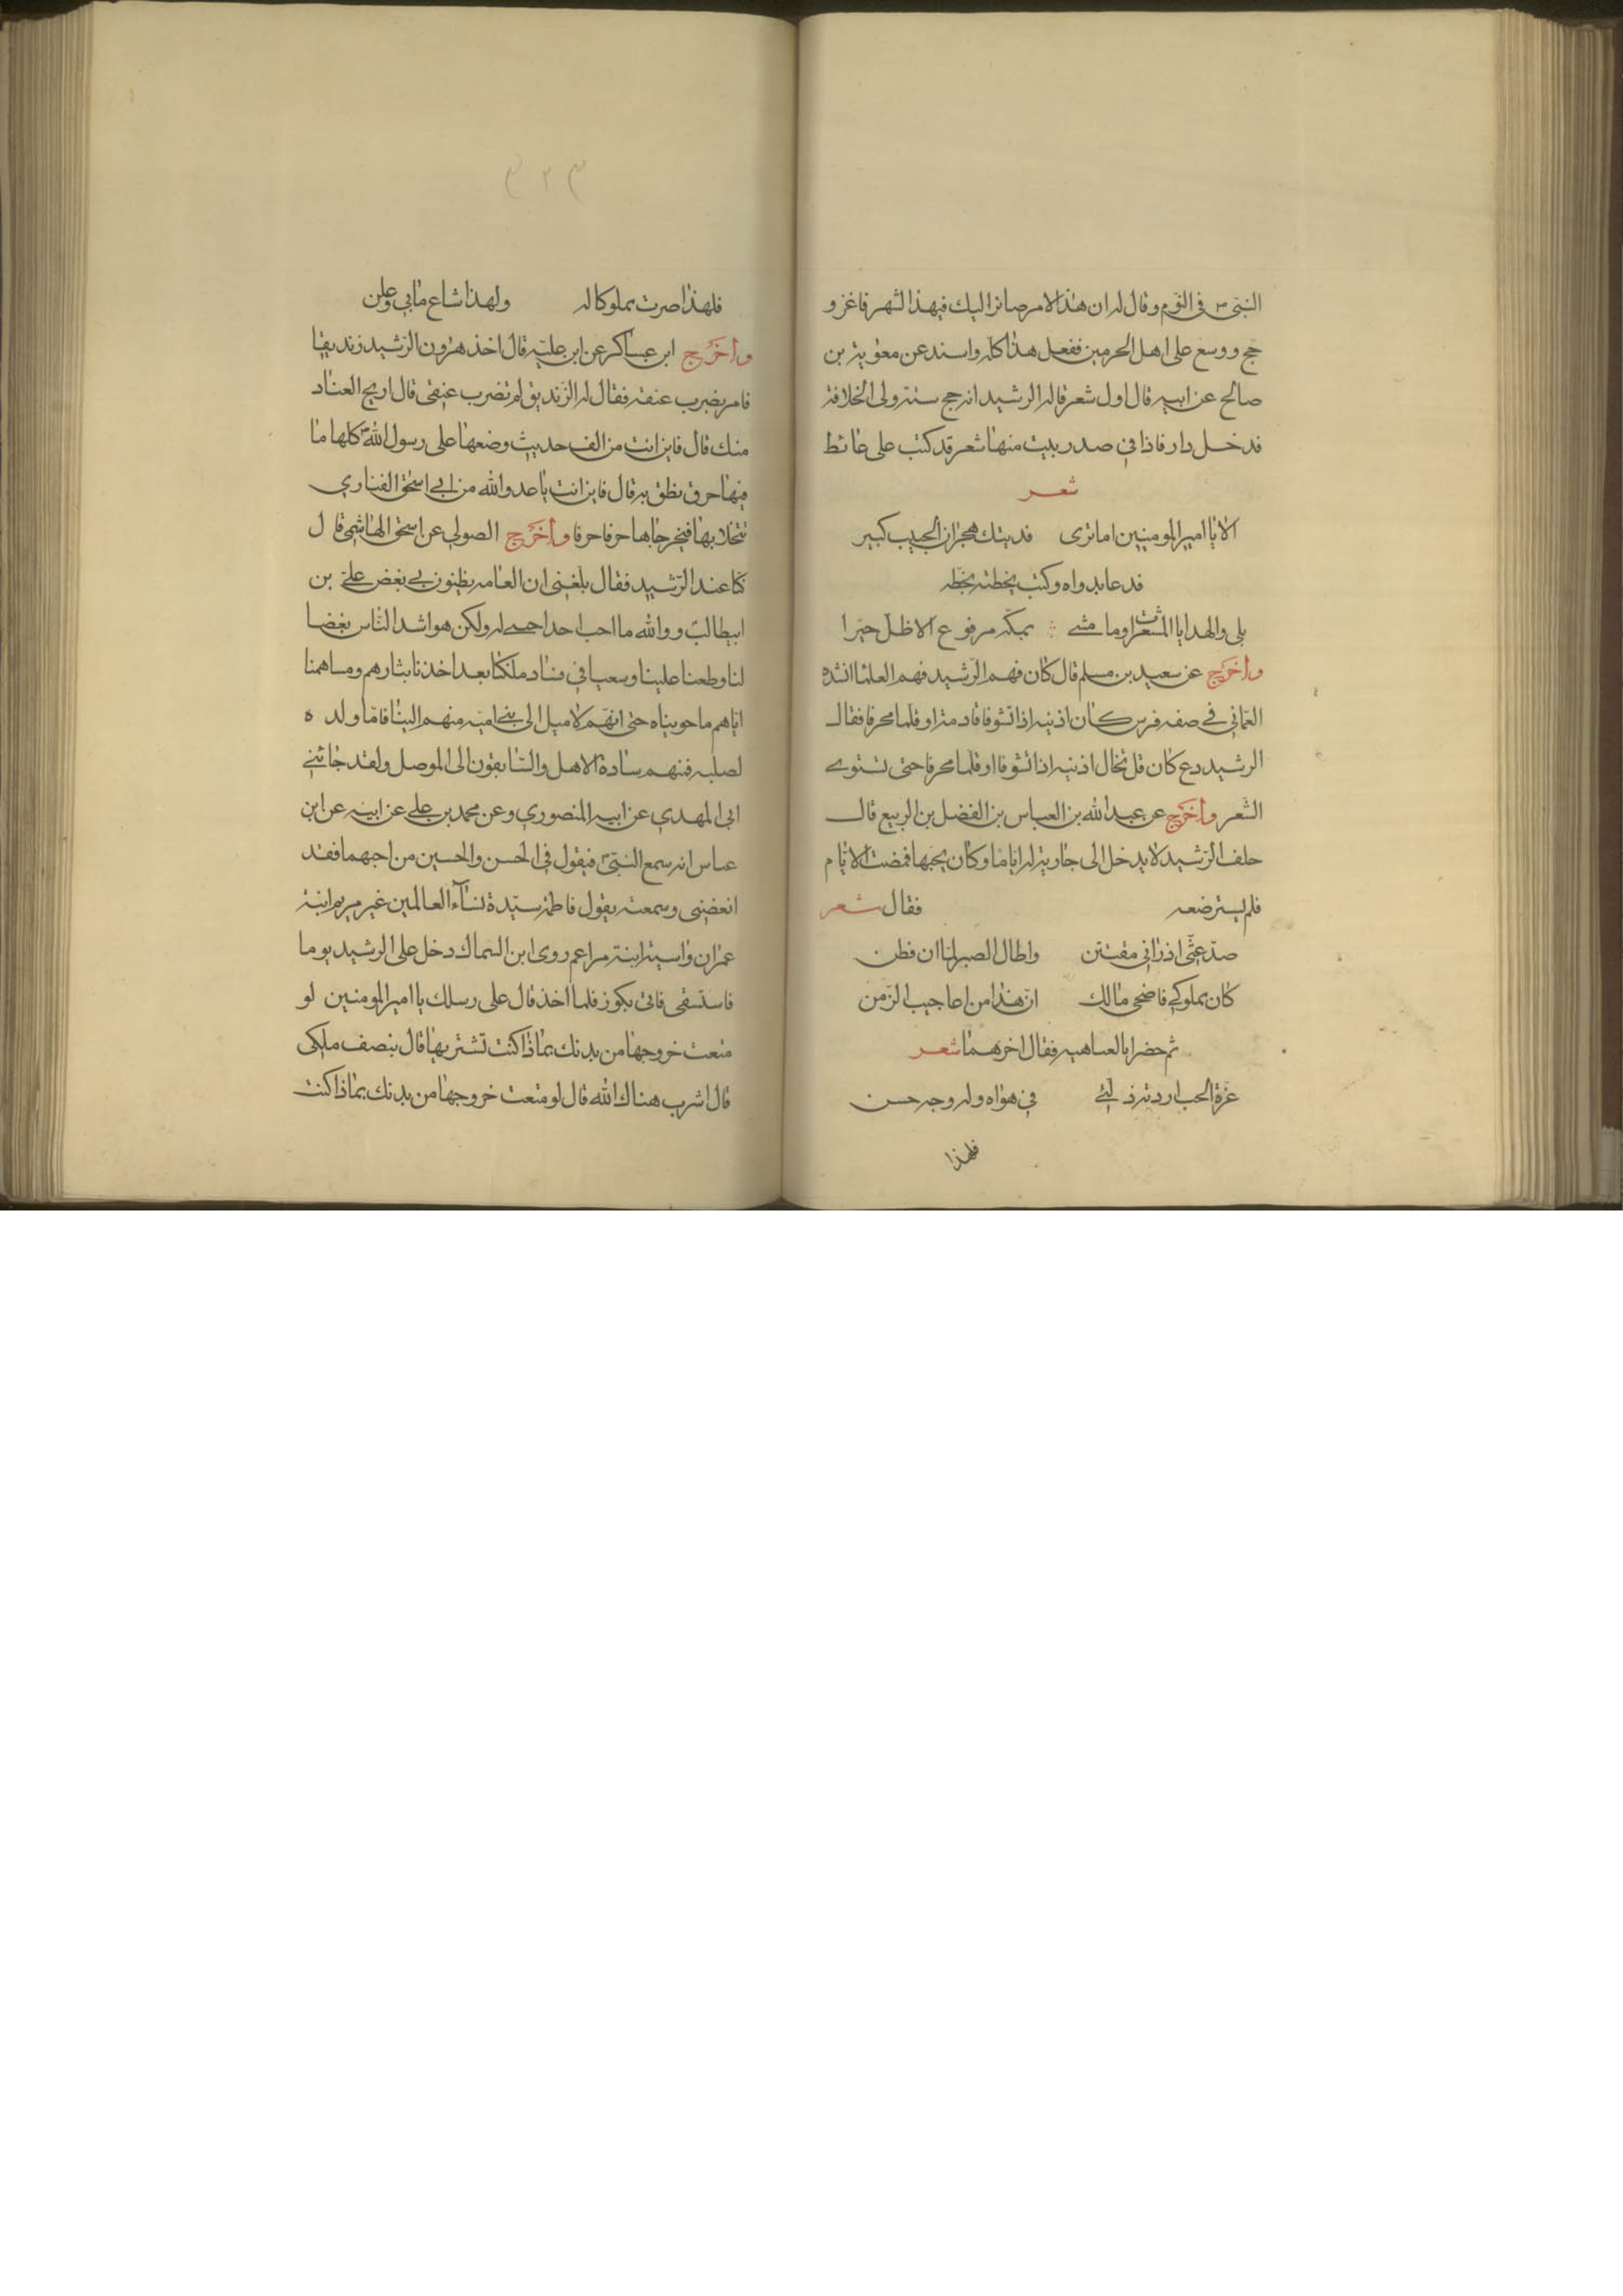 النبي ص في النوم وقال له ان هذا الامر صائر اليك في هذا الشهر فاغز و
حج ووسع على اهل الحرمين ففعل هذا كله واسند عن معوية بن
صالح عن ابيه قال اول شعر قاله الرشيد انه حج سنة ولى الخلافة
فدخل دار فاذا في صدر بيت منها شعر قد كتب على حائط
شعر
الا يا امير المومنين اما ترى فديتك هجران الحبيب كبير
فدعا بدواه وكتب بخطه
بلى والهدايا المشعرات وما مشى بمكة مرفوع الاظل حيرا
واخرج عن سعيد بن مسلم قال كان فهم الرشيد فهم العلما انشده
العماني في صفه فرس كان اذنيه اذا تشوفا قادمة او قلما محرفا فقال
الرشيد دع كان قل تخال اذنيه اذا تشوفا او قلما محرفا حتى تستوى
الشعر واخرج عن عبد الله بن العباس بن الفضل بن الربيع قال
حلف الرشيد لا يدخل الى جارية له اياما وكان يحبها فمضت الايام
فلم يسترضعه فقال شعر
صد عنى اذ رانى مفتتن واطال الصبر لما ان فطن
كان مملوكي فاضحى مالك ان هذا من اعاجيب الزمن
ثم حضر ابا العتاهيه فقال اخرهما شعر
عزة الحب اردته ذلتي في هواه وله وجه حسن
فلهذا
٣٢٣
فلهذا صرت مملوكا له ولهذا شاع ما بي وعلن
واخرج ابن عساكر عن ابن علية قال اخذ هرون الرشيد زنديقا
فامر بضرب عنقه فقال له الزنديق لم تضرب عنقى قال اريح العباد
منك قال فاين انت من الف حديث وضعها على رسول الله ص كلها ما
فيها حرف نطق به قال فاين انت يا عدو الله من ابي اسحق الفزاري
يتخلا بها فيخرجاها حرفا حرفا واخرج الصولي عن اسحق الهاشمي قال
كنا عند الرشيد فقال بلغني ان العامه يظنون بي بغض علي بن
ابيطالب ووالله ما احب احدا حبي له ولكن هو اشد الناس بغضا
لنا وطعنا علينا وسعيا في فساد ملكنا بعد اخذنا بثارهم ومساهمنا
اياهم ما حويناه حتى انهم لاميل الى بني اميه منهم الينا فاما ولده
لصلبه فمنهم سادة الاهل والسابقون الى الموصل ولقد حائني
ابي المهدي عن ابيه المنصوري وعن محمد بن علي عن ابيه عن ابن
عباس انه سمع النبي ص فيقول في الحسن والحسين من احبهما فقد
ابغضني وسمعته يقول فاطمة سيدة نساء العالمين غير مريم ابنة
عمران واسية ابنة مزاحم روى ابن السماك دخل على الرشيد يوما
فاستسقى فاتى بكوز فلما اخذ قال على رسلك يا امير المومنين لو
منعت خروجها من بدنك بماذا كنت تشتريها قال بنصف ملكى
قال اشرب هناك الله قال لو منعت خروجها من بدنك بماذا كنت